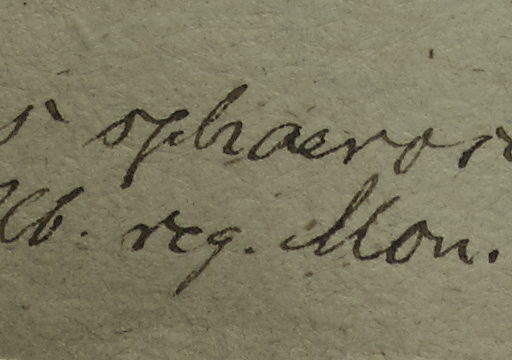 s sphaeros
Alb. reg. Mon.